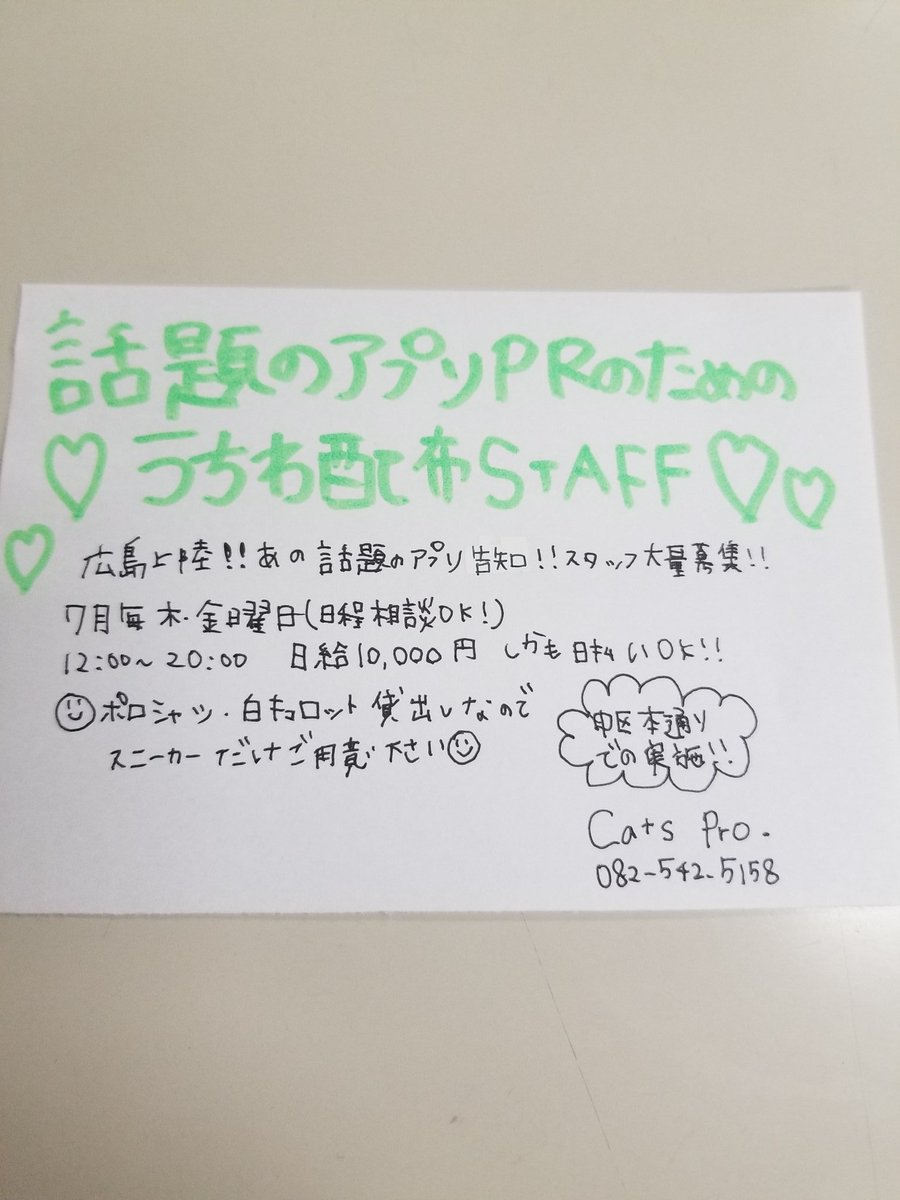 話題のアプリPRのための
♡うちわ配布STAFF♡♡
♡広島上陸!!あの話題のアプリ告知!!スタッフ大量募集!!
7月毎木・金曜日(日程相談OK!)
12:00～20:00 日給10,000円 しかも日払いOK!!
☺ポロシャツ・白キュロット貸出しなので
スニーカーだけご用意下さい☺
中区本通り
での実施!!
Cats Pro.
082-542-5158